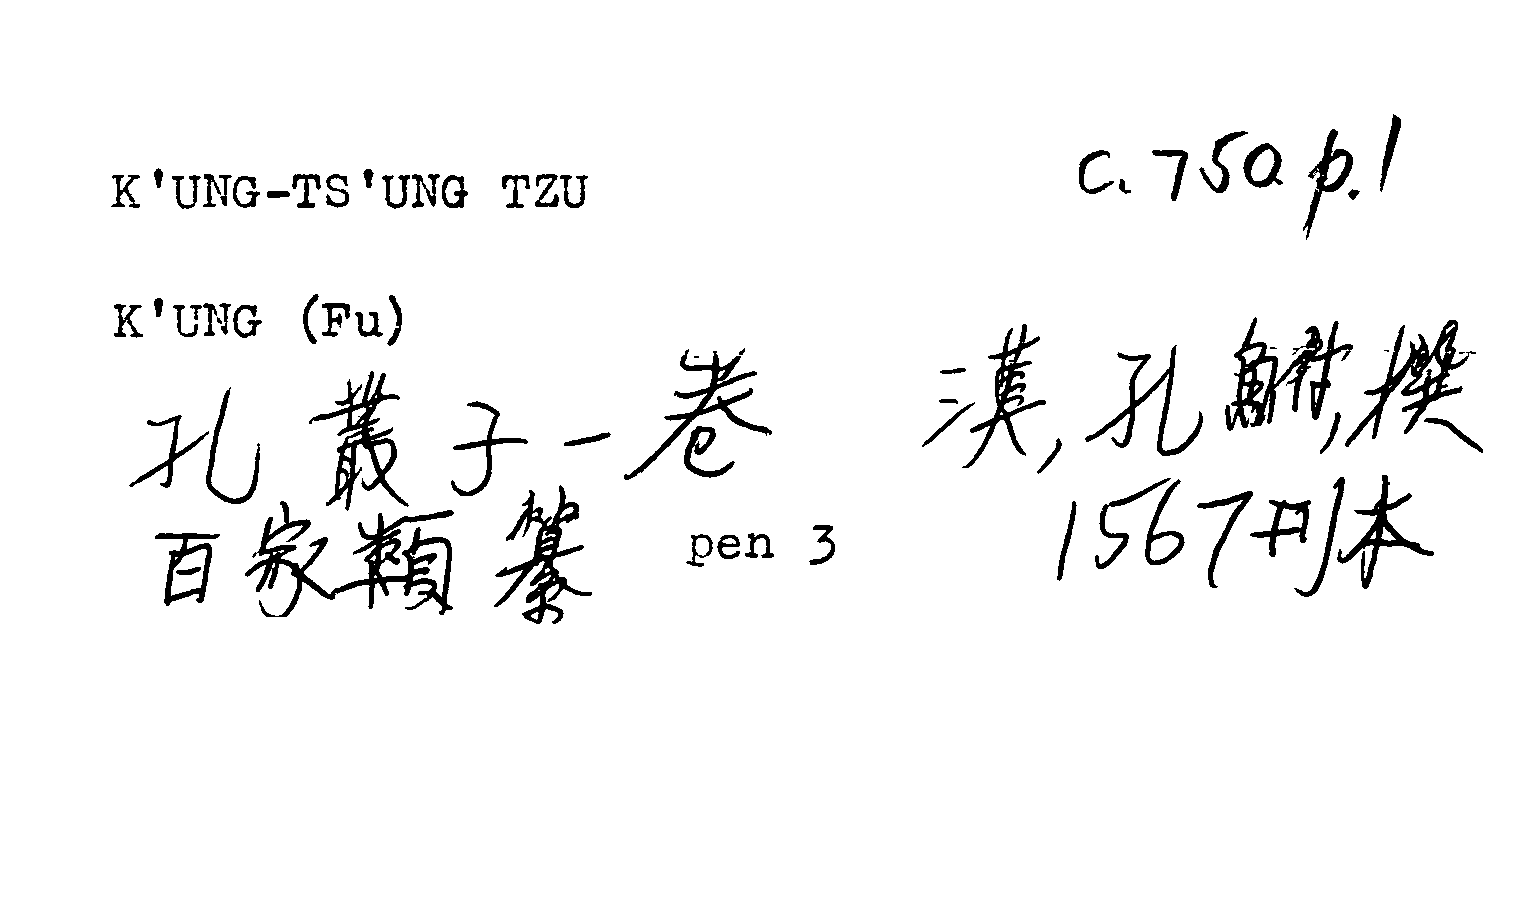 K'UNG-TS'UNG TZU c.750 p.1
K'UNG (Fu)
孔叢子一卷 漢,孔鮒,撰
百家類纂 pen 3 1567刊本